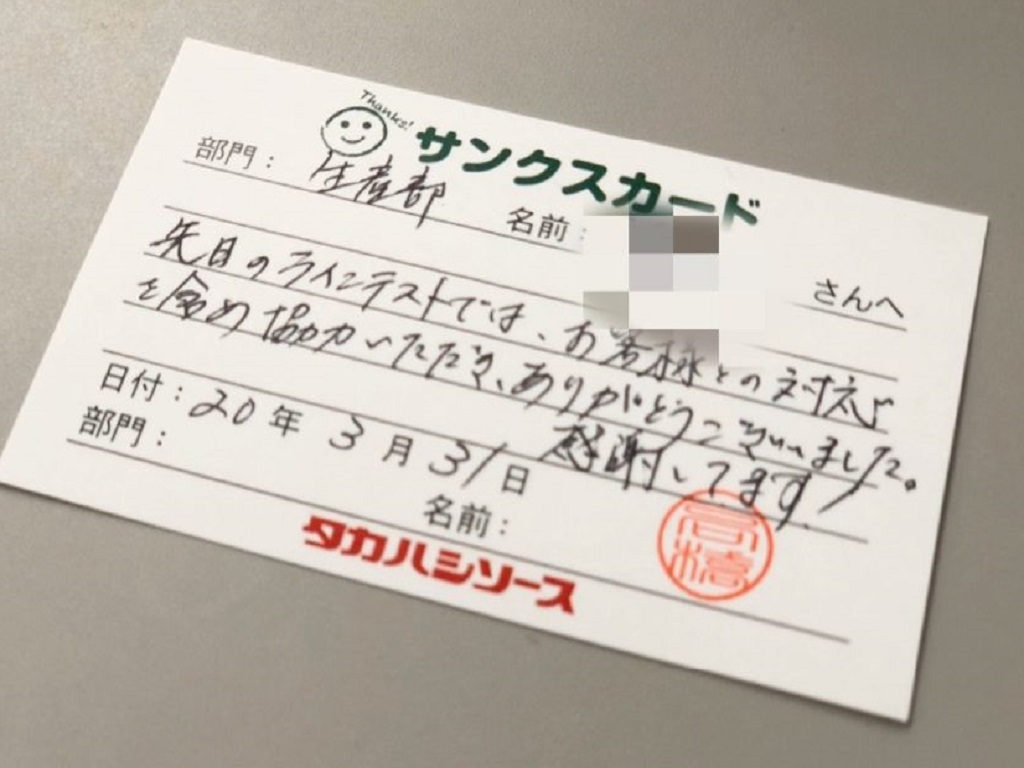 Thanks!
サンクスカード
部門： 生産部 名前： さんへ
先日のラインテストでは、お客様との対応
を含め協力いただき、ありがとうございました。
感謝してます
日付：20年3月31日
部門： 名前：
高橋
タカハシソース